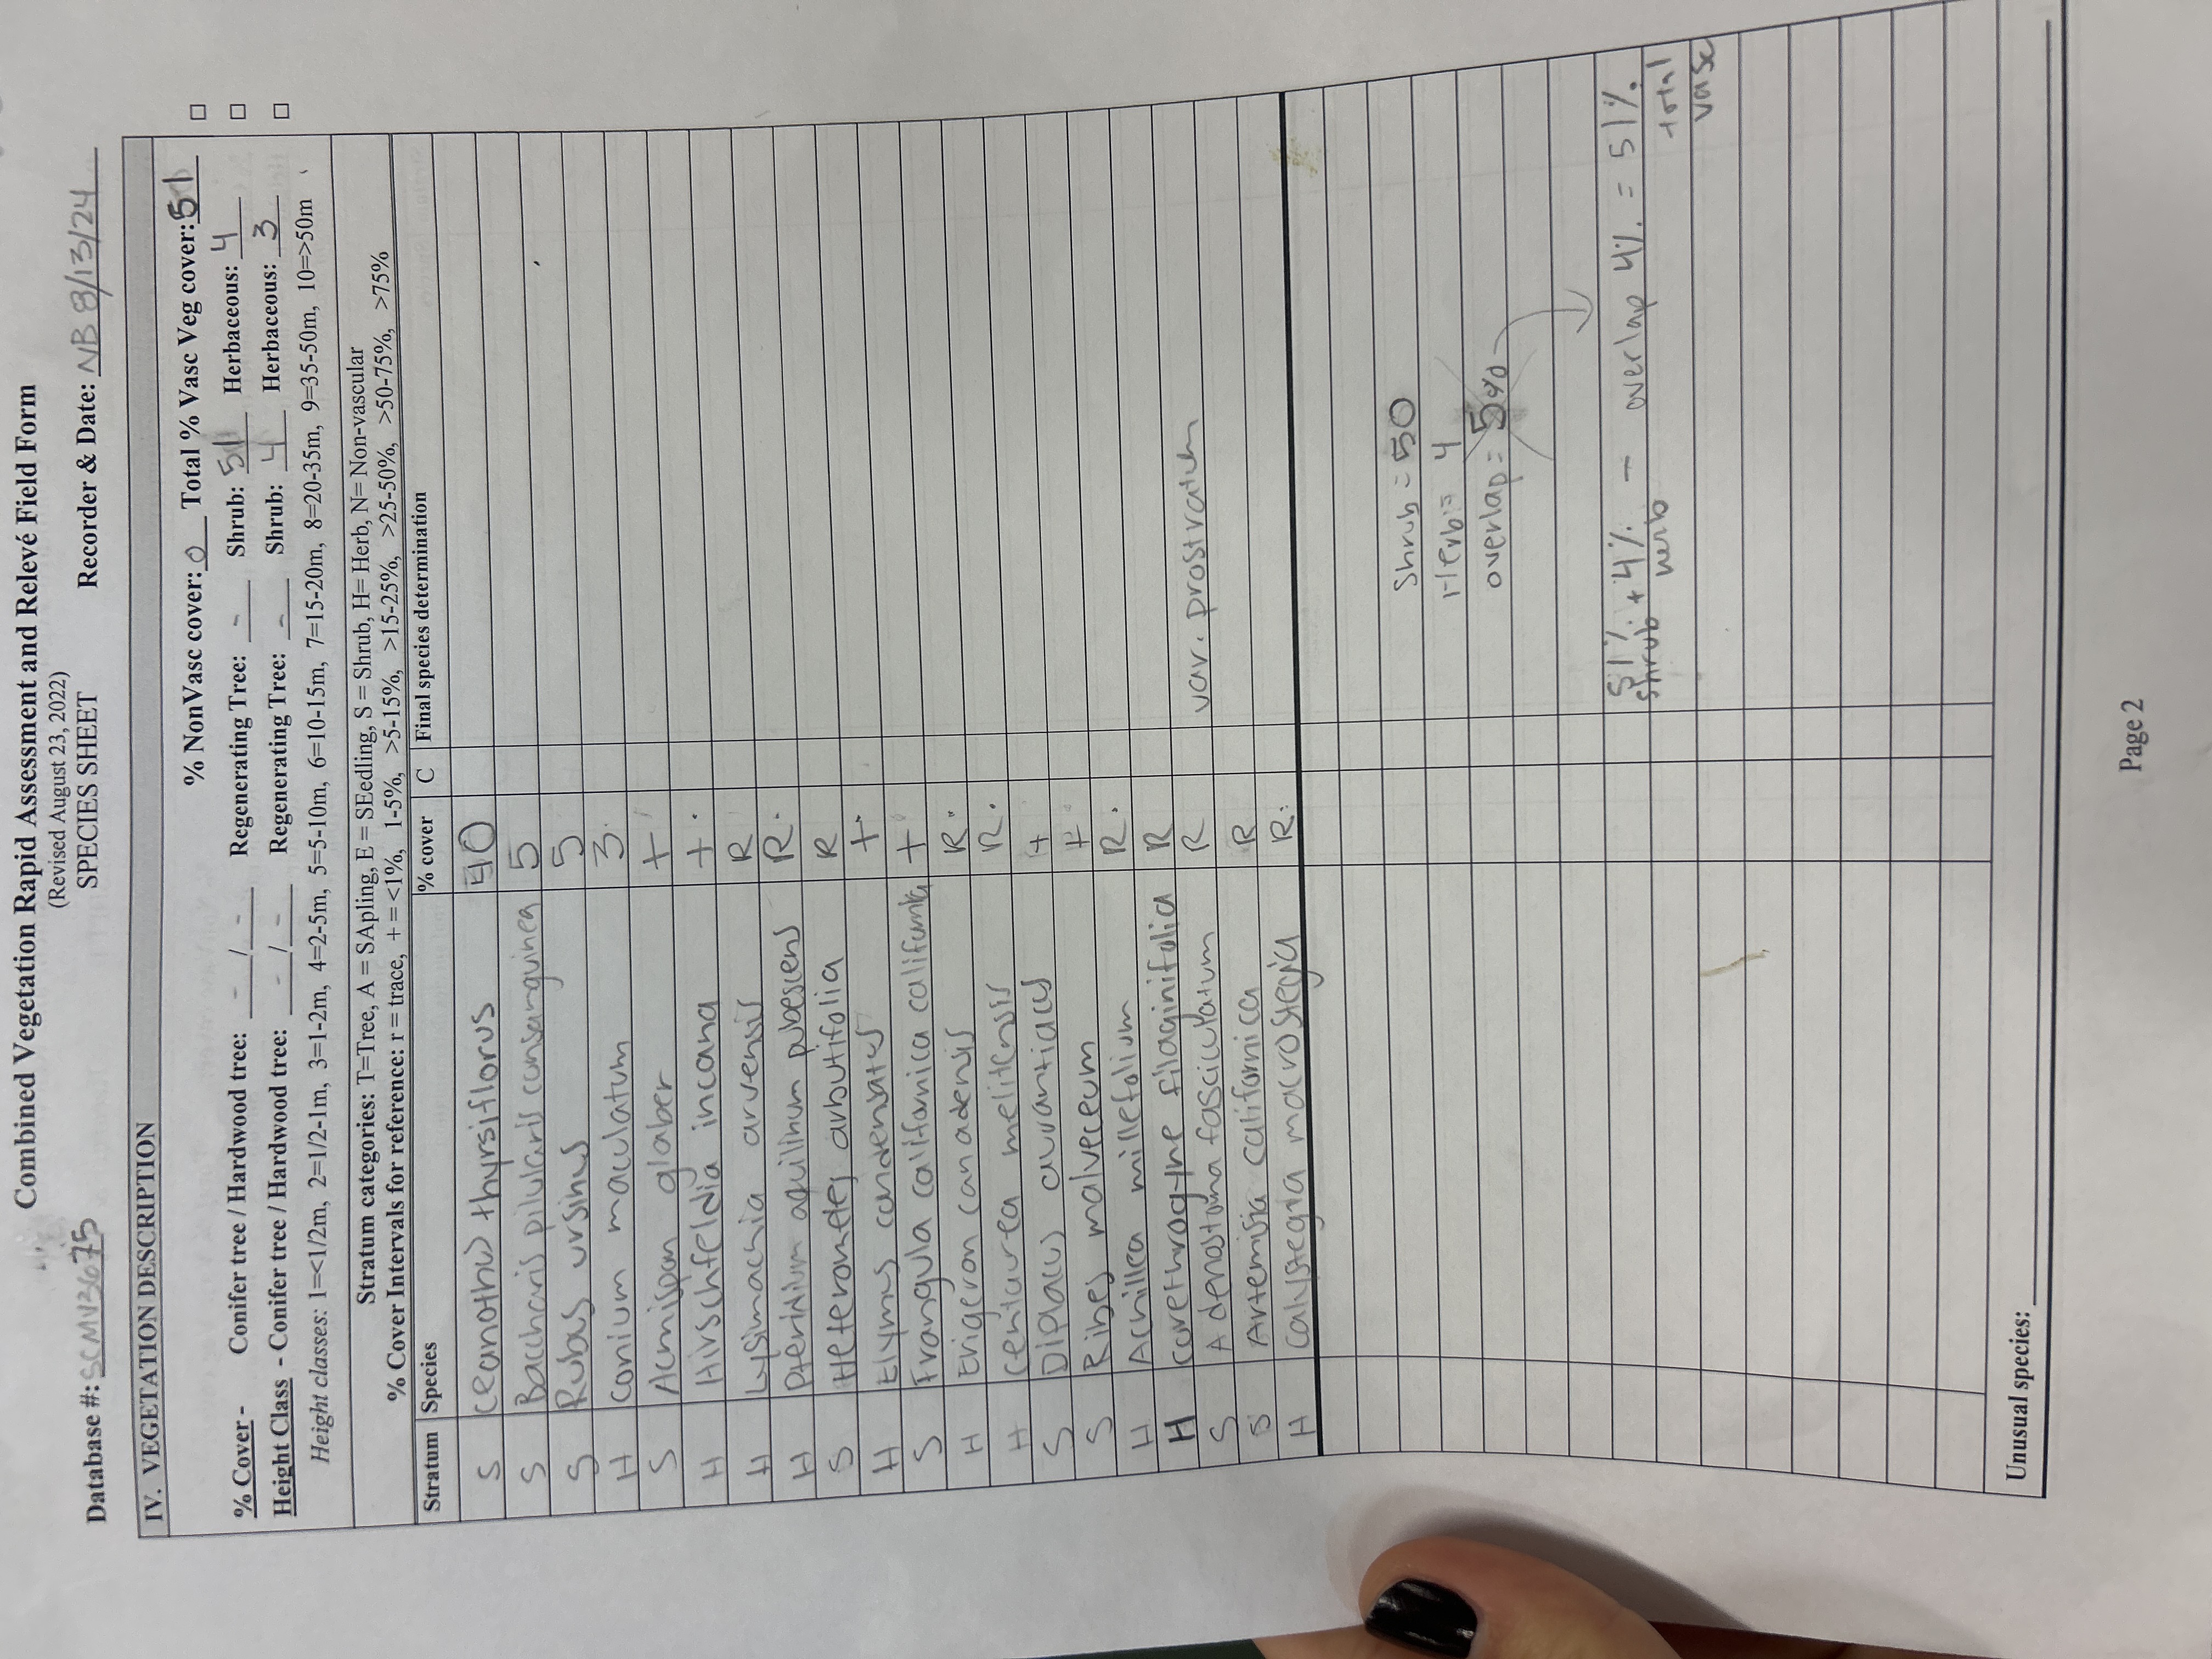 Combined Vegetation Rapid Assessment and Relevé Field Form
(Revised August 23, 2022)
SPECIES SHEET
Database #: SCMV3675 Recorder & Date: NB 8/13/24
IV. VEGETATION DESCRIPTION
% NonVasc cover: 0 Total % Vasc Veg cover: 51 □
% Cover - Conifer tree / Hardwood tree: - / - Regenerating Tree: - Shrub: 51 Herbaceous: 4 □
Height Class - Conifer tree / Hardwood tree: - / - Regenerating Tree: - Shrub: 4 Herbaceous: 3 □
Height classes: 1=<1/2m, 2=1/2-1m, 3=1-2m, 4=2-5m, 5=5-10m, 6=10-15m, 7=15-20m, 8=20-35m, 9=35-50m, 10=>50m
Stratum categories: T=Tree, A = SApling, E = SEedling, S = Shrub, H= Herb, N= Non-vascular
% Cover Intervals for reference: r = trace, + = <1%, 1-5%, >5-15%, >15-25%, >25-50%, >50-75%, >75%
Stratum Species % cover C Final species determination
S Ceanothus thyrsiflorus 40
S Baccharis pilularis consanguinea 5
S Rubus ursinus 5
H Conium maculatum 3
S Acmispon glaber +
H Hirschfeldia incana +
H Lysimachia arvensis R
H Pteridium aquilinum pubescens R
S Heteromeles arbutifolia R
H Elymus condensatus +
S Frangula californica californica +
H Erigeron canadensis R
H Centaurea melitensis R
S Diplacus aurantiacus +
S Ribes malvaceum +
H Achillea millefolium R
H Corethrogyne filaginifolia R
S Adenostoma fasciculatum R var. prostratum
S Artemisia californica R
H Calystegia macrostegia R
Shrub = 50
Herb = 4
overlap = 5%
51% + 4% - overlap 4% = 51%
shrub herb total
vasc
Unusual species:
Page 2